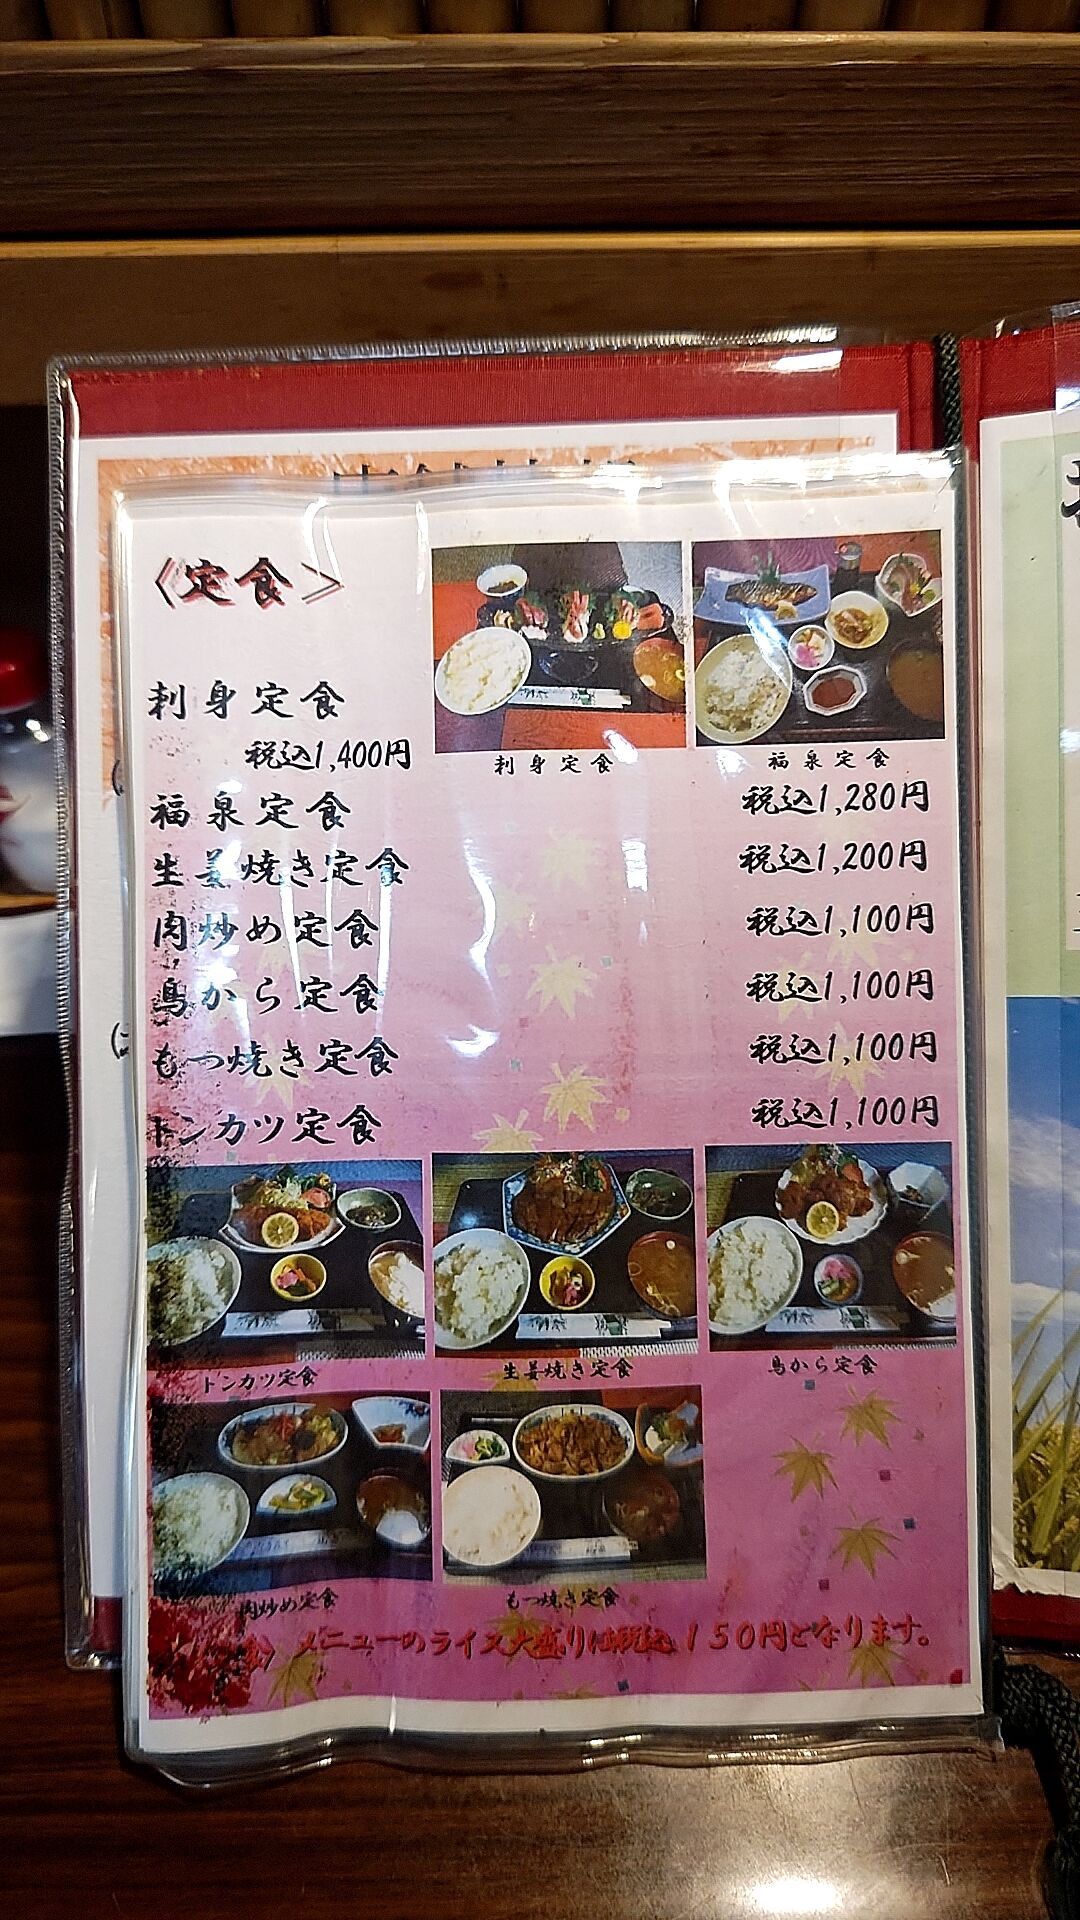 〈定食〉
刺身定食
税込1,400円
刺身定食
福泉定食
福泉定食 税込1,280円
生姜焼き定食 税込1,200円
肉炒め定食 税込1,100円
鳥から定食 税込1,100円
もつ焼き定食 税込1,100円
トンカツ定食 税込1,100円
トンカツ定食
生姜焼き定食
鳥から定食
肉炒め定食
もつ焼き定食
メニューのライス大盛りは税込150円となります。